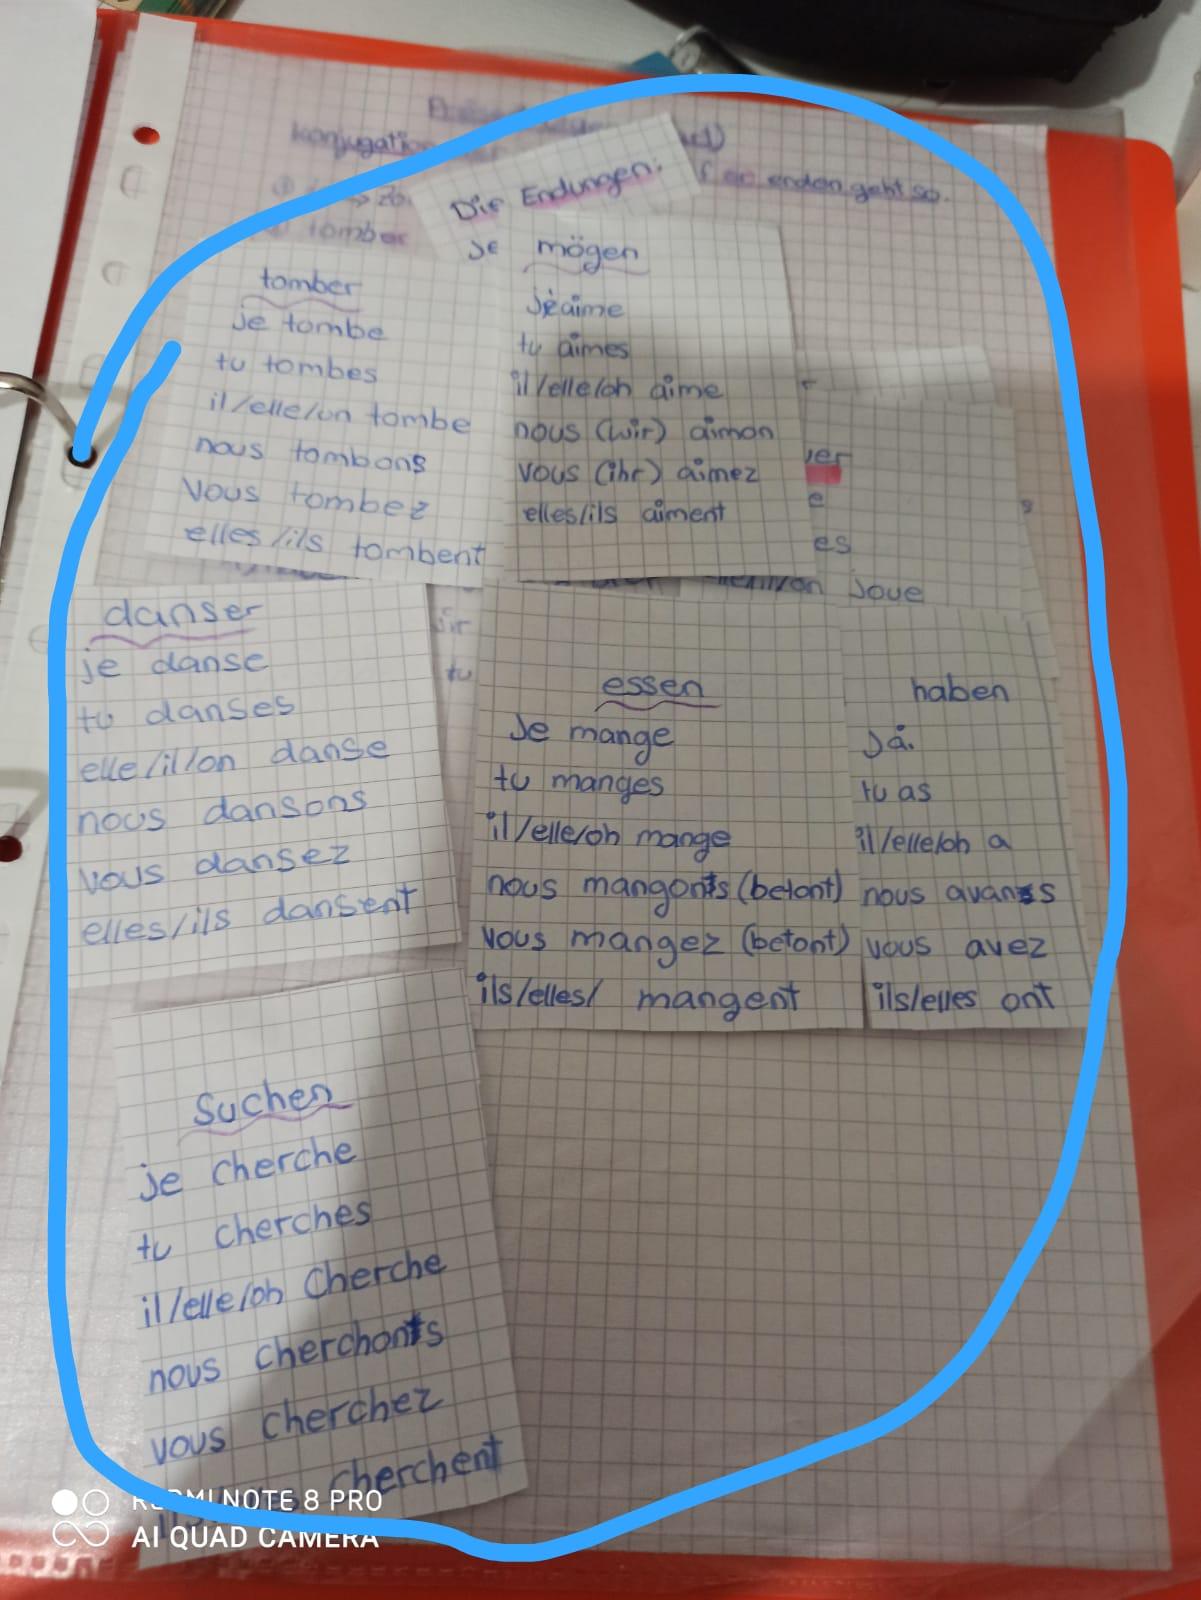 Konjugation
enden geht so.
Die Endungen:
tomber
je
tomber
je tombe
tu tombes
il/elle/on tombe
nous tombons
vous tombez
elles/ils tombent
mögen
J'éaime
tu aimes
il/elle/on aime
nous (wir) aimon
vous (ihr) aimez
elles/ils aiment
es
Joue
tu
danser
je danse
tu danses
elle/il/on danse
nous dansons
vous dansez
elles/ils dansent
essen
Je mange
tu manges
il/elle/on mange
nous mangons (betont)
vous mangez (betont)
ils/elles/ mangent
haben
Já.
tu as
il/elle/on a
nous avans
vous avez
ils/elles ont
Suchen
je cherche
tu cherches
il/elle/on Cherche
nous cherchons
vous cherchez
cherchent
REDMI NOTE 8 PRO
AI QUAD CAMERA